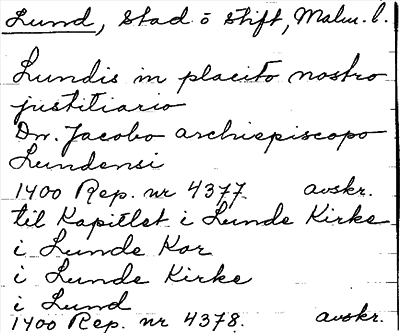 Lund, stad o stift, Malm. l.
Lundis in placito nostro
justitiario
Dn. Jacobo archiepiscopo
Lundensi
1400 Rep. nr 4377 avskr.
til Kapitlet i Lunde Kirke
i Lunde Kor
i Lunde Kirke
i Lund
1400 Rep. nr 4378. avskr.